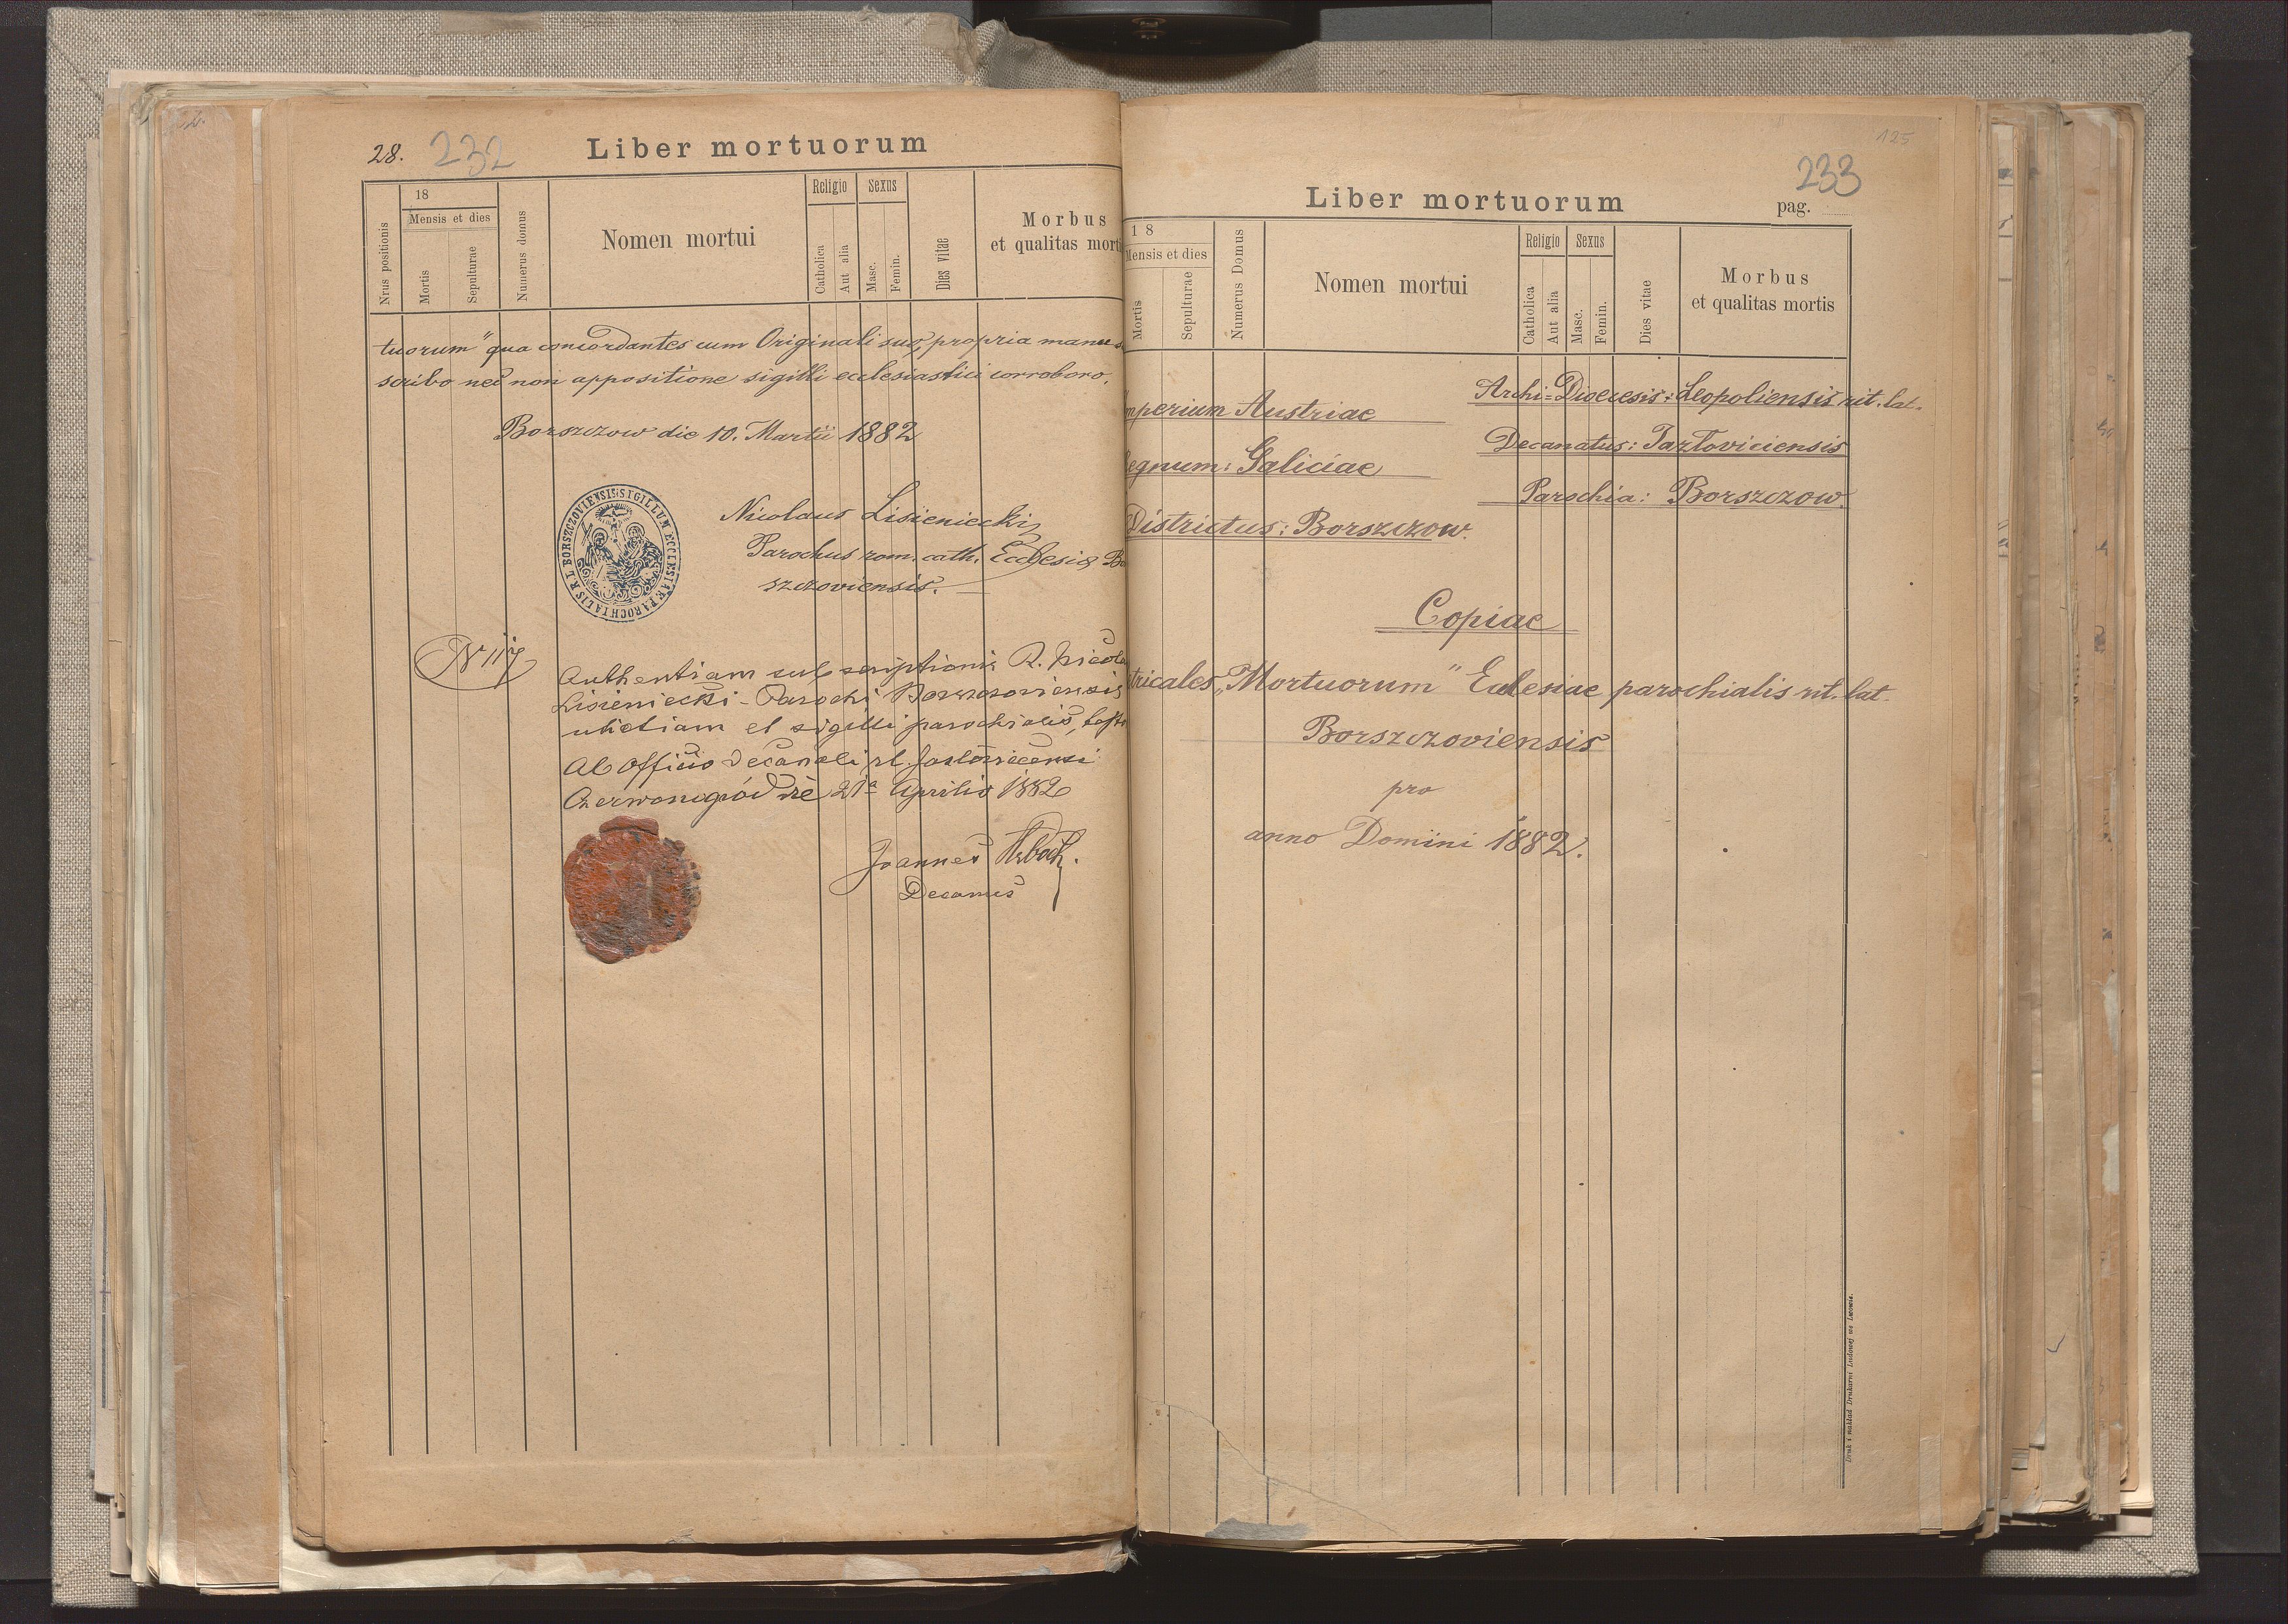 28. 232 Liber mortuorum
Nrus positionis
18
Mensis et dies
Mortis
Sepulturae
Numerus domus
Nomen mortui
Religio
Catholica
Aut alia
Sexus
Masc.
Femin.
Dies vitae
Morbus
et qualitas morti
tuorum" qua concordantes cum Originali suo, propria manu
scribo nec non appositione sigilli ecclesiastici corroboro.
Borszczow die 10. Martii 1882
SIGILLUM ECCLESIAE PAROCHIALIS R. L. BORSZCZOVIENSIS
Nicolaus Lisieniecki
Parochus rom. cath. Ecclesiæ B
szczoviensis.
N 117
Authentiam subscriptionis R. Nicola
Lisieniecki - Parochi Borszczoviensis
uti etiam et sigilli parochialis, testo
Ab Officio Decanali rl. Jaslovicensi
Czerwonogród die 21a Aprilis 1882
Joannes
Decanus
125
233
Liber mortuorum
pag.
18
Mensis et dies
Mortis
Sepulturae
Numerus Domus
Nomen mortui
Religio
Catholica
Aut alia
Sexus
Masc.
Femin.
Dies vitae
Morbus
et qualitas mortis
mperium Austriae
egnum: Galiciae
Districtus: Borszczow.
Archi-Dioecesis: Leopoliensis rit. lat.
Decanatus: Jazloviciensis
Parochia: Borszczow.
Copiae
tricales „Mortuorum" Eclesiae parochialis rit. lat.
Borszczoviensis
pro
anno Domini 1882.
Druk i nakład Drukarni Ludowej we Lwowie.